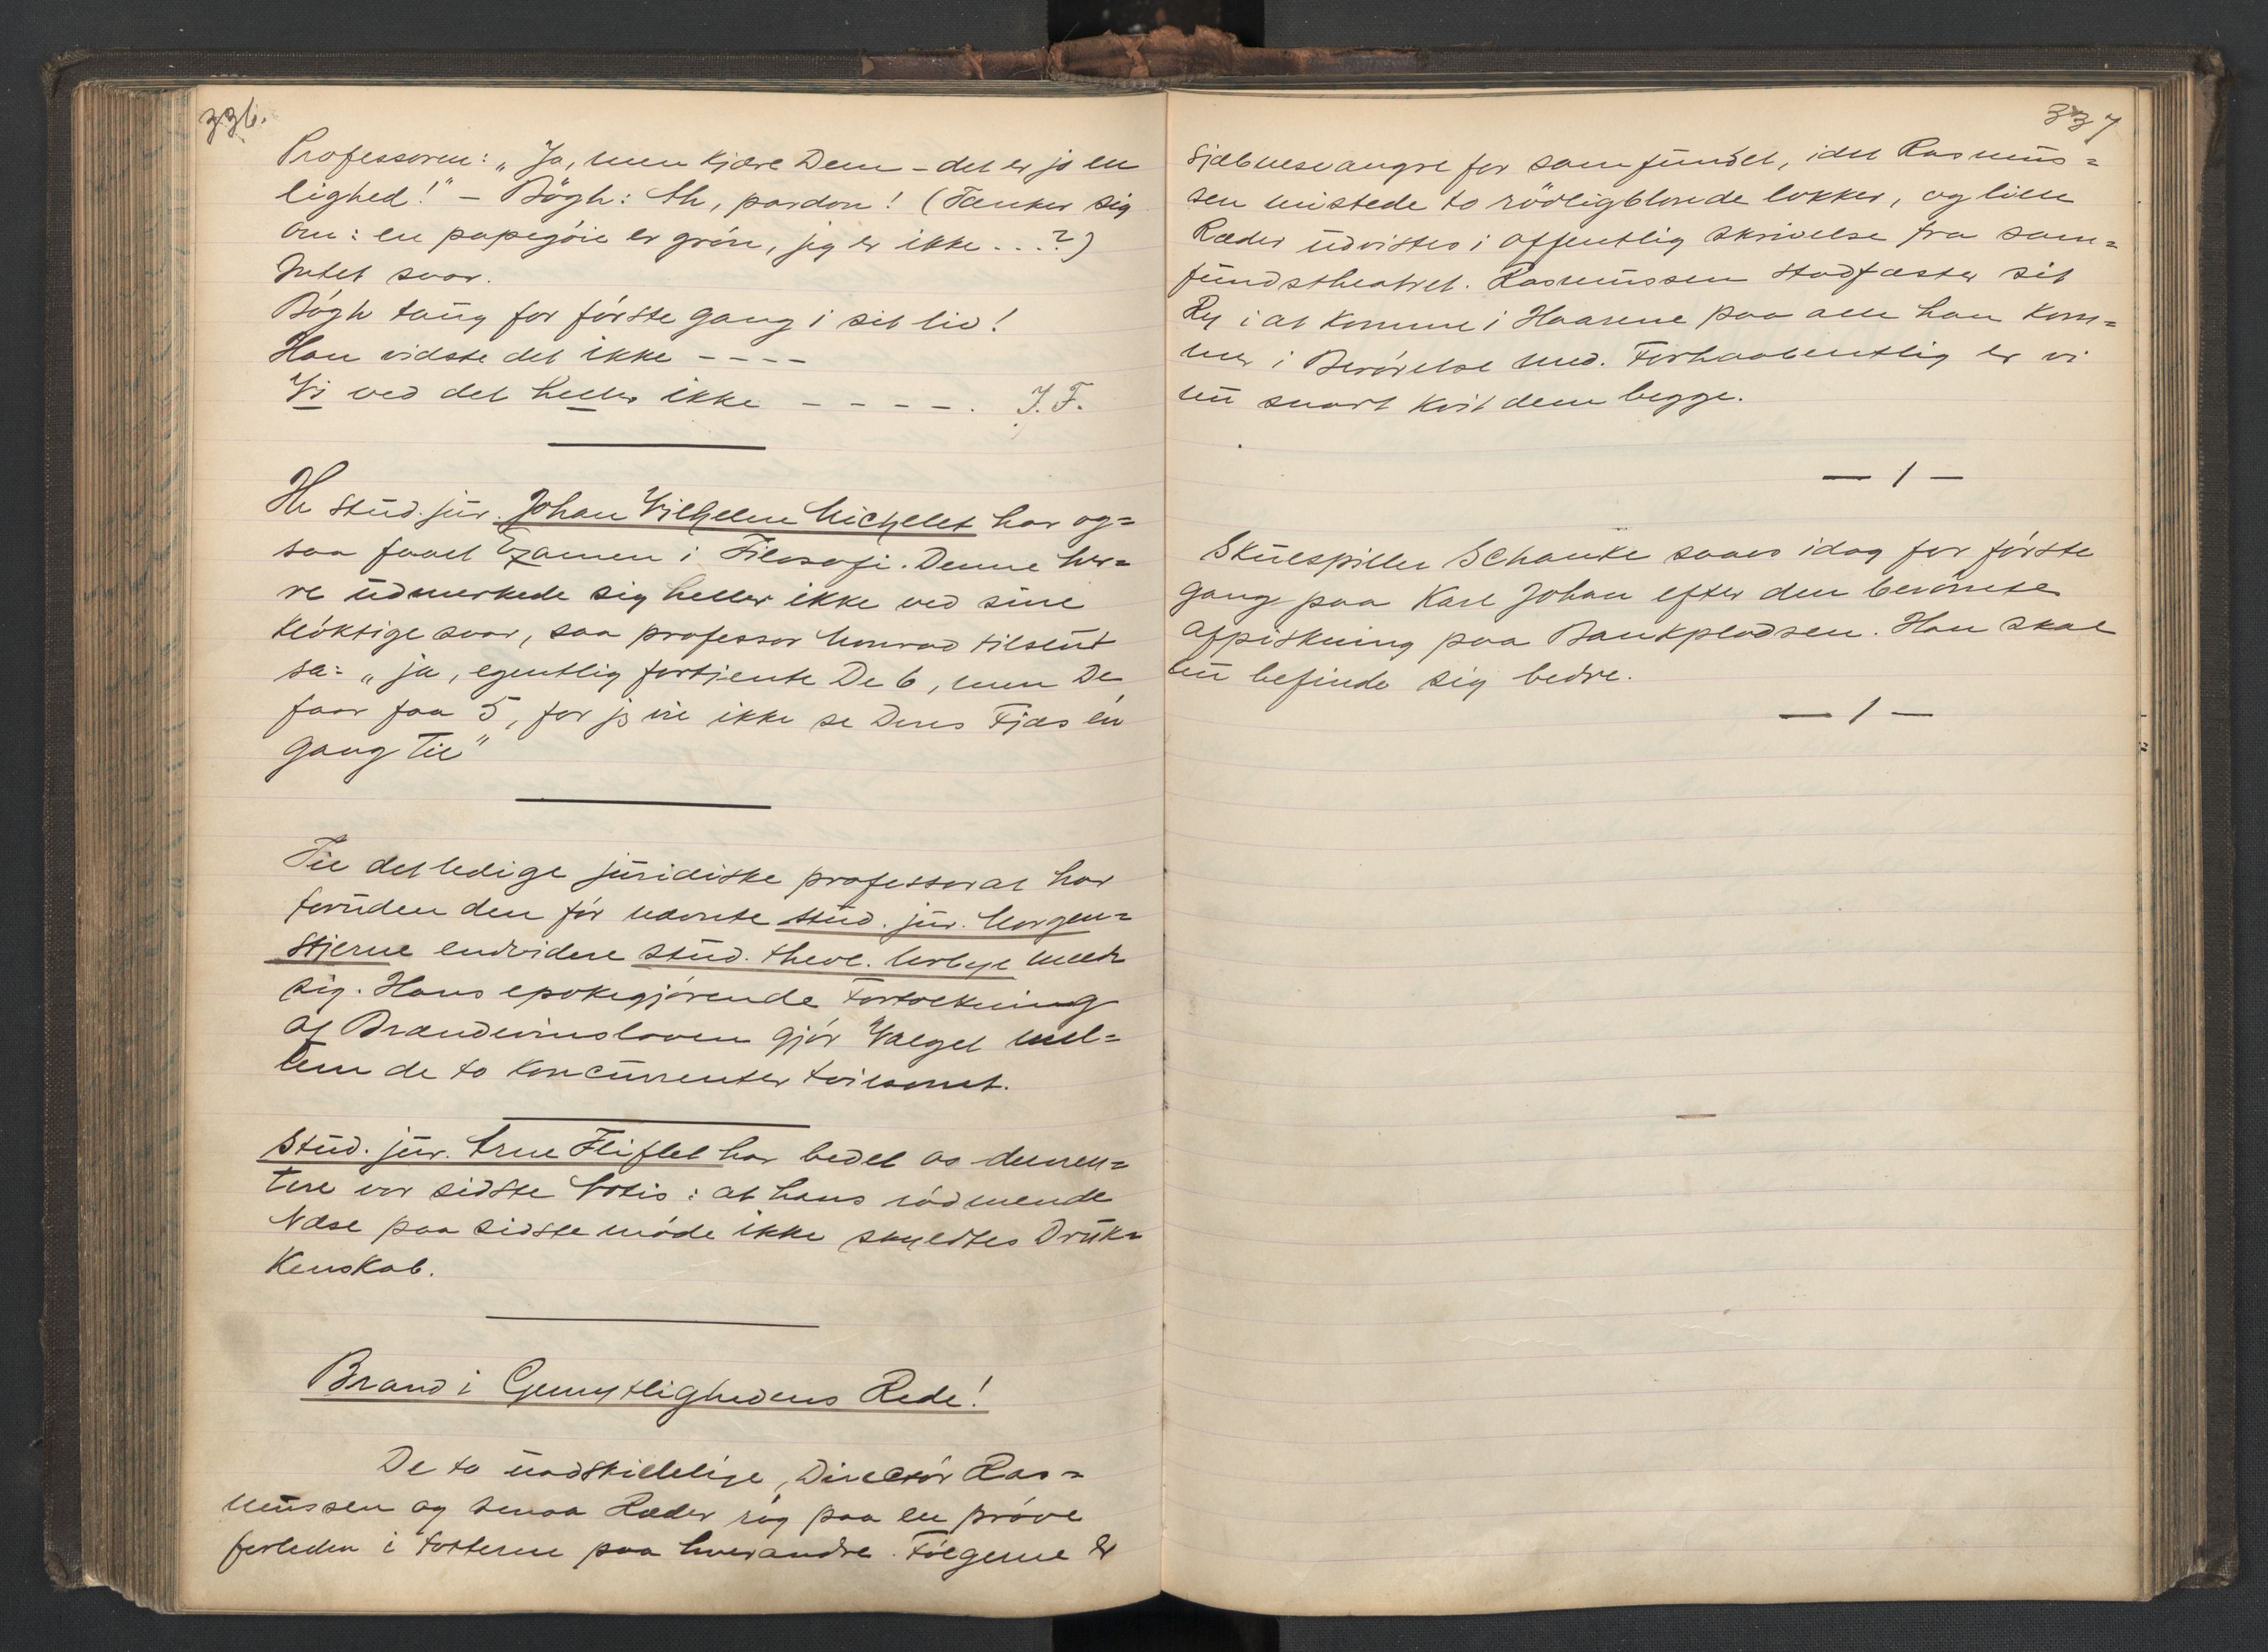 336.
Professoren: „Ja, men kjære Dem – det er jo en
lighed!" – Bögh: Ah, pardon! (Tænker sig
om: en papegöie er grön, jeg er ikke ...?)
Intet svar.
Bögh taug for förste gang i sit liv!
Han vidste det ikke – – – –
Vi ved det heller ikke – – – – . J. F.
Hr stud. jur. Johan Vilhelm Michelet har og=
saa faaet Examen i Filosofi. Denne her=
re udmerkede sig heller ikke ved sine
klöktige svar, saa professor Monrad tilslut
sa: „ja, egentlig fortjente De 6, men De
faar faa 5, for jeg vil ikke se Deres Fjæs én
gang til"
Til det ledige juridiske professorat har
foruden den för nævnte stud. jur. Morgen=
stjerne endvidere stud. theol. Norbye meldt
sig. Hans epokegjörende Fortolkning
af Brændevinsloven gjör Valget mel=
lem de to koncurrenter tvilsomt.
Stud. jur. Arne Fliflet har bedet os demen=
tere vor sidste Notis: at hans rödmende
Næse paa sidste möde ikke skyldtes Druk=
kenskab.
Brand i Gemytlighedens Rede!
De to uadskillelige, Direktör Ras=
mussen og Ræder rög paa en pröve
forleden i totterne paa hverandre. Fölgerne er
337
sjæbnesvangre for samfundet, idet Rasmus=
sen mistede to rödligblonde lokker, og lille
Ræder udvistes i offentlig skrivelse fra sam=
fundstheatret. Rasmussen stadfæster sit
Ry i at komme i Haarene paa alle han kom=
mer i Berörelse med. Forhaabentlig er vi
nu snart kvit dem begge.
– / –
Skuespiller Schanke saaes idag for förste
gang paa Karl Johan efter den berömte
afpiskning paa Bankpladsen. Han skal
nu befinde sig bedre.
– / –